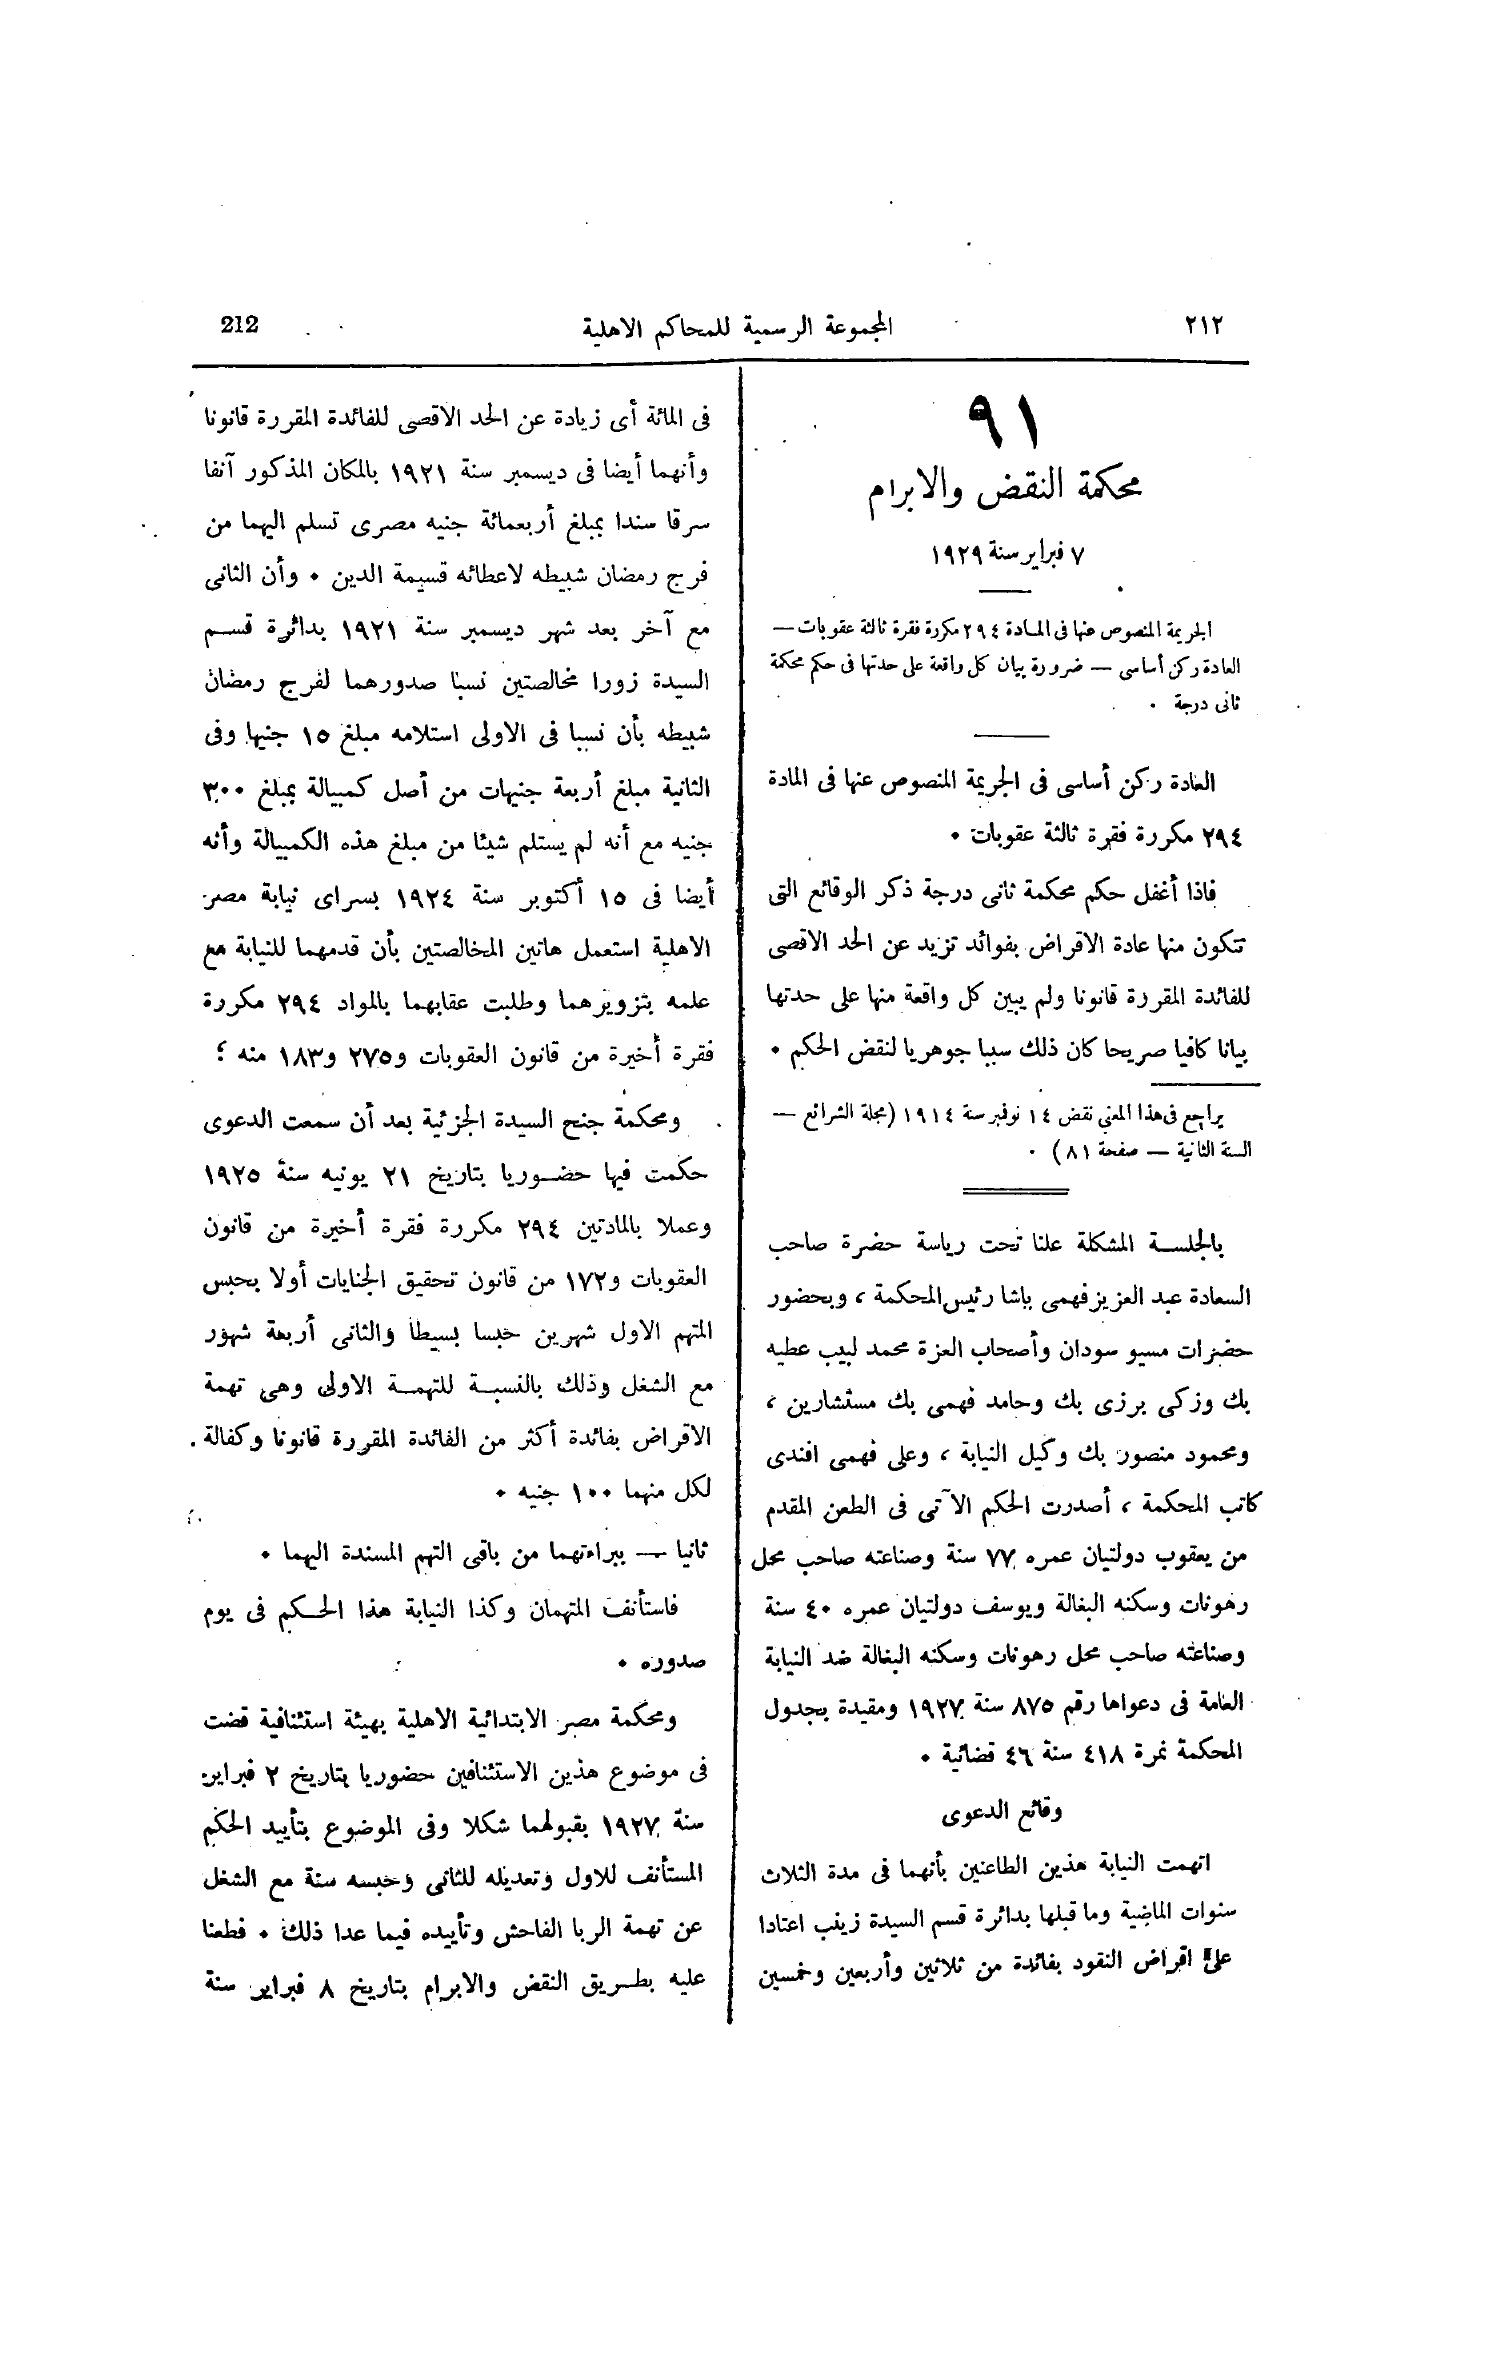 ٢١٢
المجموعة الرسمية للمحاكم الاهلية
212
٩١
محكمة النقض والابرام
٧ فبراير سنة ١٩٢٩
الجريمة المنصوص عنها فى المادة ٢٩٤ مكررة فقرة ثالثة عقوبات —
العادة ركن أساسى — ضرورة بيان كل واقعة على حدتها فى حكم محكمة
ثانى درجة ٠
العادة ركن أساسى فى الجريمة المنصوص عنها فى المادة
٢٩٤ مكررة فقرة ثالثة عقوبات ٠
فاذا أغفل حكم محكمة ثانى درجة ذكر الوقائع التى
تتكون منها عادة الاقراض بفوائد تزيد عن الحد الاقصى
للفائدة المقررة قانونا ولم يبين كل واقعة منها على حدتها
بيانا كافيا صريحا كان ذلك سببا جوهريا لنقض الحكم ٠
يراجع فى هذا المعنى نقض ١٤ نوفبر سنة ١٩١٤ (مجلة الشرائع —
السنة الثانية — صفحة ٨١) ٠
بالجلسة المشكلة علنا تحت رياسة حضرة صاحب
السعادة عبد العزيز فهمى باشا رئيس المحكمة ، وبحضور
حضرات مسيو سودان وأصحاب العزة محمد لبيب عطيه
بك وزكى برزى بك وحامد فهمى بك مستشارين ،
ومحمود منصور بك وكيل النيابة ، وعلى فهمى افندى
كاتب المحكمة ، أصدرت الحكم الآتى فى الطعن المقدم
من يعقوب دولتيان عمره ٧٧ سنة وصناعته صاحب محل
رهونات وسكنه البغالة ويوسف دولتيان عمره ٤٠ سنة
وصناعته صاحب محل رهونات وسكنه البغالة ضد النيابة
العامة فى دعواها رقم ٨٧٥ سنة ١٩٢٧ ومقيدة بجدول
المحكمة نمرة ٤١٨ سنة ٤٦ قضائية ٠
وقائع الدعوى
اتهمت النيابة هذين الطاعنين بأنهما فى مدة الثلاث
سنوات الماضية وما قبلها بدائرة قسم السيدة زينب اعتادا
على اقراض النقود بفائدة من ثلاثين وأربعين وخمسين
فى المائة أى زيادة عن الحد الاقصى للفائدة المقررة قانونا
وأنهما أيضا فى ديسمبر سنة ١٩٢١ بالمكان المذكور آنفا
سرقا سندا بمبلغ أربعمائة جنيه مصرى تسلم اليهما من
فرج رمضان شبيطه لاعطائه قسيمة الدين ٠ وأن الثانى
مع آخر بعد شهر ديسمبر سنة ١٩٢١ بدائرة قسم
السيدة زورا مخالصتين نسبا صدورهما لفرج رمضان
شبيطه بأن نسبا فى الاولى استلامه مبلغ ١٥ جنيها وفى
الثانية مبلغ أربعة جنيهات من أصل كمبيالة بمبلغ ٣٠٠
جنيه مع أنه لم يستلم شيئا من مبلغ هذه الكمبيالة وأنه
أيضا فى ١٥ أكتوبر سنة ١٩٢٤ بسراى نيابة مصر
الاهلية استعمل هاتين المخالصتين بأن قدمهما للنيابة مع
علمه بتزويرهما وطلبت عقابهما بالمواد ٢٩٤ مكررة
فقرة أخيرة من قانون العقوبات و٢٧٥ و١٨٣ منه ؛
ومحكمة جنح السيدة الجزئية بعد أن سمعت الدعوى
حكمت فيها حضوريا بتاريخ ٢١ يونيه سنة ١٩٢٥
وعملا بالمادتين ٢٩٤ مكررة فقرة أخيرة من قانون
العقوبات و١٧٢ من قانون تحقيق الجنايات أولا بحبس
المتهم الاول شهرين حبسا بسيطا والثانى أربعة شهور
مع الشغل وذلك بالنسبة للتهمة الاولى وهى تهمة
الاقراض بفائدة أكثر من الفائدة المقررة قانونا وكفالة
لكل منهما ١٠٠ جنيه ٠
ثانيا — ببراءتهما من باقى التهم المسندة اليهما ٠
فاستأنف المتهمان وكذا النيابة هذا الحكم فى يوم
صدوره ٠
ومحكمة مصر الابتدائية الاهلية بهيئة استئنافية قضت
فى موضوع هذين الاستئنافين حضوريا بتاريخ ٢ فبراير
سنة ١٩٢٧ بقبولهما شكلا وفى الموضوع بتأييد الحكم
المستأنف للاول وتعديله للثانى وحبسه سنة مع الشغل
عن تهمة الربا الفاحش وتأييده فيما عدا ذلك ٠ فطعنا
عليه بطريق النقض والابرام بتاريخ ٨ فبراير سنة